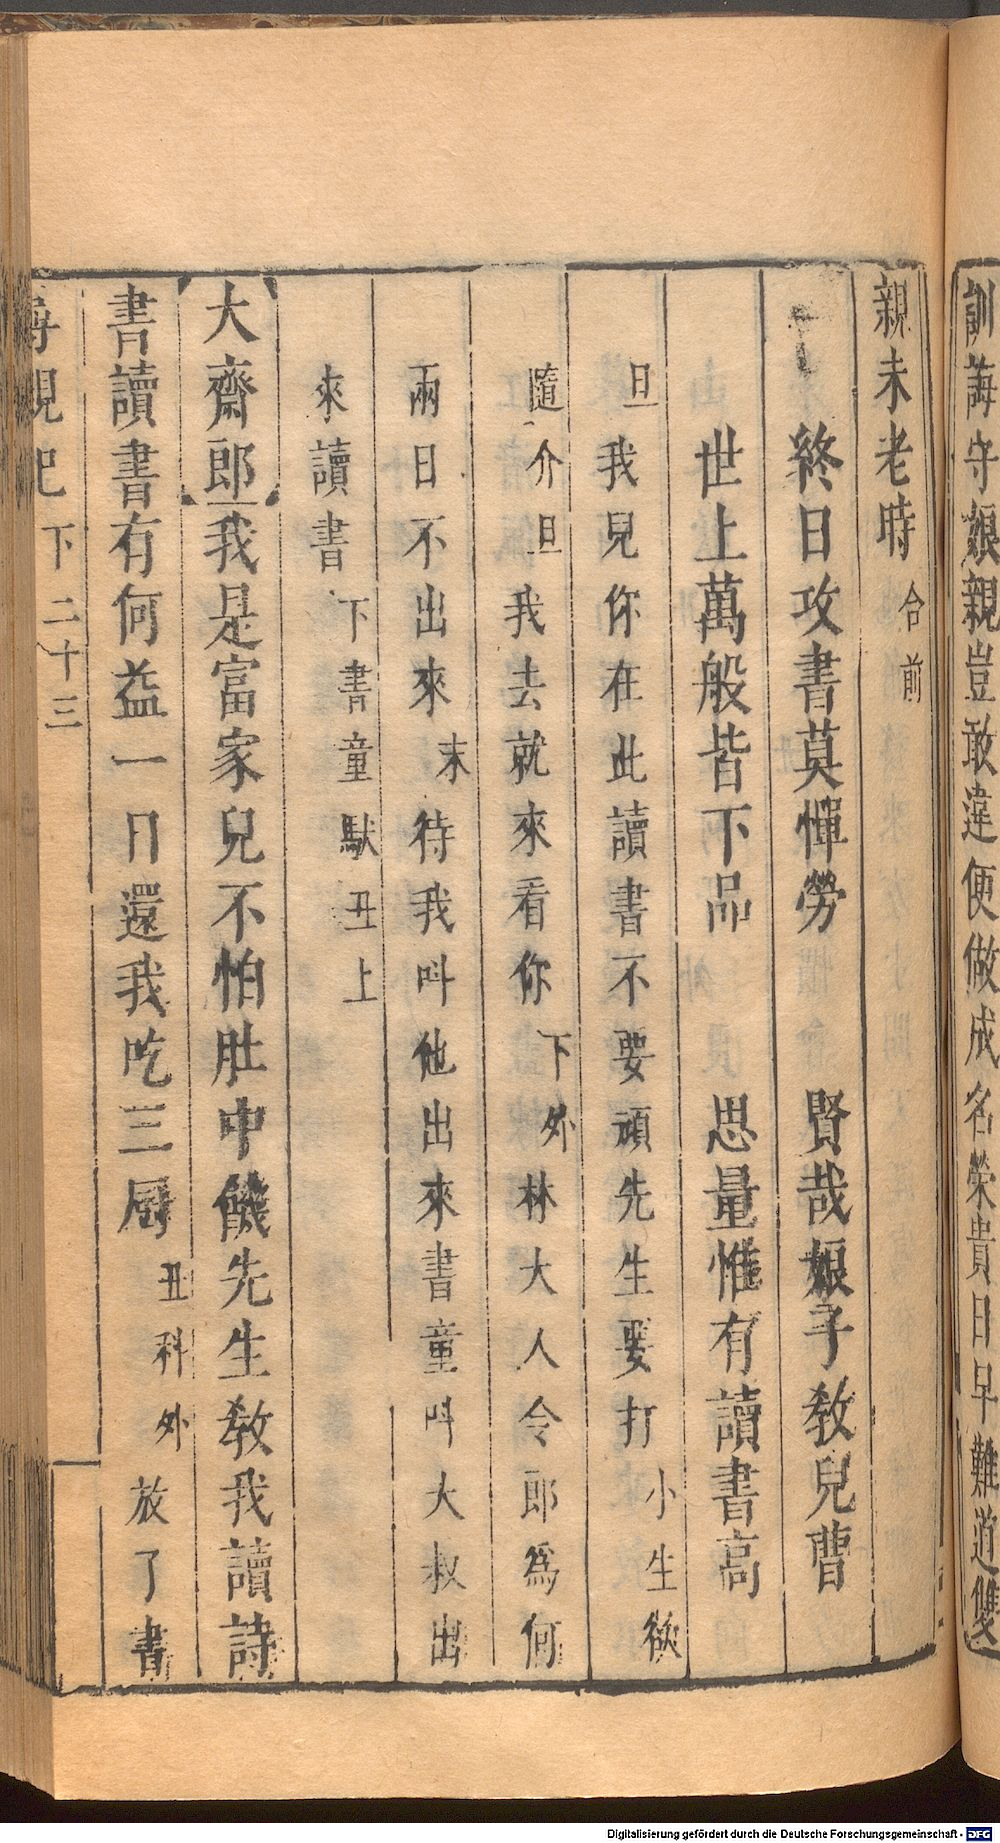 訓誨守孃親豈敢違便做成名榮貴日早難道雙
親未老時 合前
終日攻書莫憚勞 賢哉娘子教兒曹
世上萬般皆下品 思量惟有讀書高
旦我兒你在此讀書不要頑先生要打小生欲
隨介旦我去就來看你下外林大人令郎爲何
兩日不出來末待我呌他出來書童呌大叔出
來讀書下書童馱丑上
大齋郎我是富家兒不怕肚中饑先生教我讀詩
書讀書有何益一日還我吃三厨丑科外放了書
尋親記 下 二十三
Digitalisierung gefördert durch die Deutsche Forschungsgemeinschaft - DFG